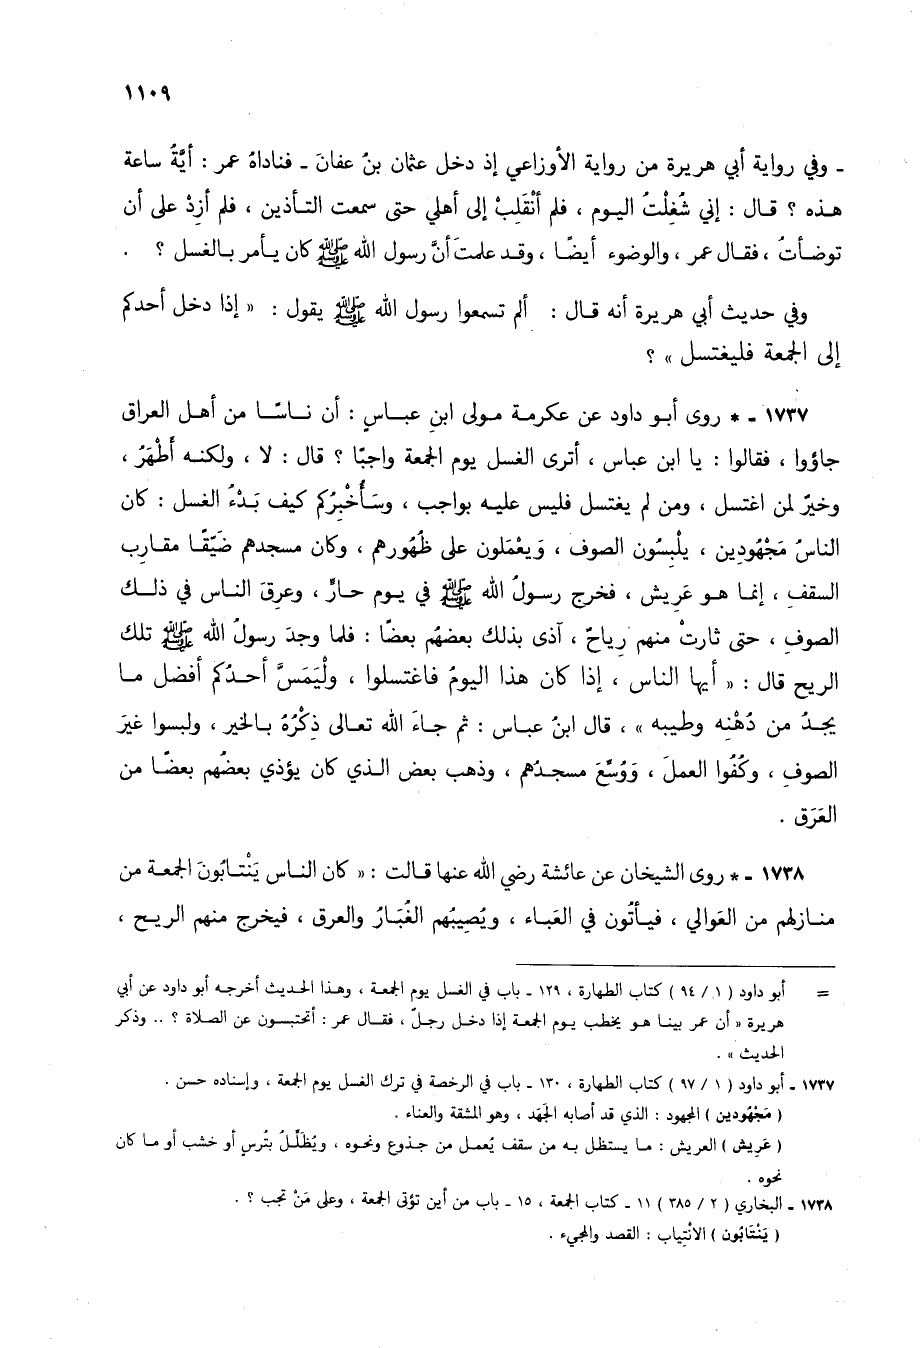 ١١٠٩
ـ وفي رواية أبي هريرة من رواية الأوزاعي إذ دخل عثمان بنُ عفانَ ـ فناداهُ عمر : أيَّةُ ساعة
هذه ؟ قال : إني شُغِلْتُ اليوم ، فلم أنْقَلِبْ إلى أهلي حتى سمعت التأذين ، فلم أزِدْ على أن
توضأتُ ، فقال عمر ، والوضوء أيضًا ، وقد علمتَ أنَّ رسول الله ﷺ كان يأمر بالغسل ؟ .
وفي حديث أبي هريرة أنه قال : ألم تسمعوا رسول الله ﷺ يقول : « إذا دخل أحدكم
إلى الجمعة فليغتسل » ؟
١٧٣٧ ـ * روى أبو داود عن عكرمة مولى ابنِ عباسٍ : أن ناسًا من أهل العراق
جاؤوا ، فقالوا : يا ابن عباس ، أترى الغسل يوم الجمعة واجبًا ؟ قال : لا ، ولكنه أَطْهَرُ ،
وخيرٌ لمن اغتسل ، ومن لم يغتسل فليس عليه بواجب ، وسَأُخْبِرُكم كيف بَدْءُ الغسل : كان
الناسُ مَجْهُودِين ، يلْبِسُون الصوف ، وَيعْمَلون على ظُهُورهم ، وكان مسجدهم ضَيِّقًا مقاربِ
السقفِ ، إنما هو عَرِيش ، فخرج رسولُ الله ﷺ في يوم حارٍّ ، وعرِقَ الناس في ذلك
الصوفِ ، حتى ثارتْ منهم رياحٌ ، آذى بذلك بعضهُم بعضًا : فلما وجدَ رسولُ الله ﷺ تلك
الريح قال : « أيها الناس ، إذا كان هذا اليومُ فاغتسلوا ، ولْيَمَسَّ أحدُكم أفضل ما
يجدُ من دُهْنِه وطيبه » ، قال ابنُ عباس : ثم جاءَ الله تعالى ذِكْرُهُ بالخير ، ولبسوا غيَر
الصوفِ ، وكُفُوا العملَ ، وَوُسِّعَ مسجدُهم ، وذهب بعض الذي كان يؤذي بعضهُم بعضًا من
العَرَق .
١٧٣٨ ـ * روى الشيخان عن عائشة رضي الله عنها قالت : « كان الناس يَنْتابُونَ الجمعة من
منازلهم من العَوالي ، فيأتُون في العَباء ، ويُصِيبُهم الغُبَارُ والعرق ، فيخرج منهم الريح ،
= أبو داود ( ١ / ٩٤ ) كتاب الطهارة ، ١٢٩ ـ باب في الغسل يوم الجمعة ، وهذا الحديث أخرجه أبو داود عن أبي
هريرة « أن عمر بينا هو يخطب يوم الجمعة إذا دخل رجلٌ ، فقال عمر : أتحتبسون عن الصلاة ؟ .. وذكر
الحديث » .
١٧٣٧ ـ أبو داود ( ١ / ٩٧ ) كتاب الطهارة ، ١٣٠ ـ باب في الرخصة في ترك الغسل يوم الجمعة ، وإسناده حسن .
( مَجْهُودين ) المجهود : الذي قد أصابه الجَهَد ، وهو المشقة والعناء .
( عَريش ) العريش : ما يستظل به من سقف يُعمل من جذوع ونحوه ، ويُظَلَّلُ بتُرسٍ أو خشب أو ما كان
نحوه .
١٧٣٨ ـ البخاري ( ٢ / ٣٨٥ ) ١١ ـ كتاب الجمعة ، ١٥ ـ باب من أين تؤتى الجمعة ، وعلى مَنْ تجب ؟ .
( يَنْتَابُون ) الانْتِياب : القصد والمجيء .